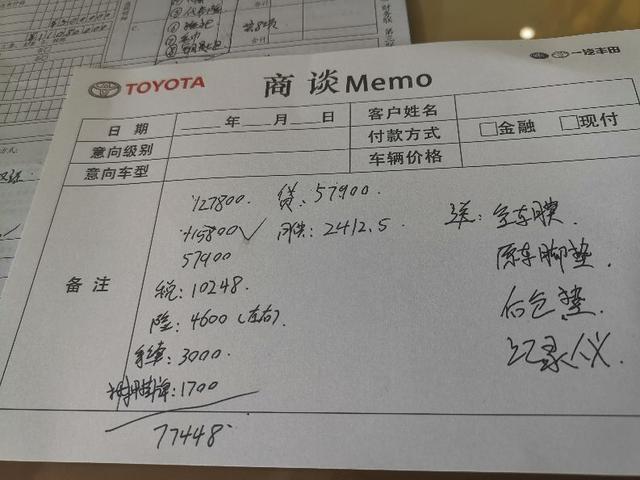 TOYOTA 商谈Memo 一汽丰田
日期 ____年____月____日 客户姓名
意向级别 付款方式 □金融 □现付
意向车型 车辆价格
备注
127800. 贷:57900.
115800✓ 月供:2412.5 送:全车膜.
57900 原车脚垫.
税:10248. 后仓垫.
险:4600(左右). 记录仪.
手续:3000.
抵押挂牌:1700
77448